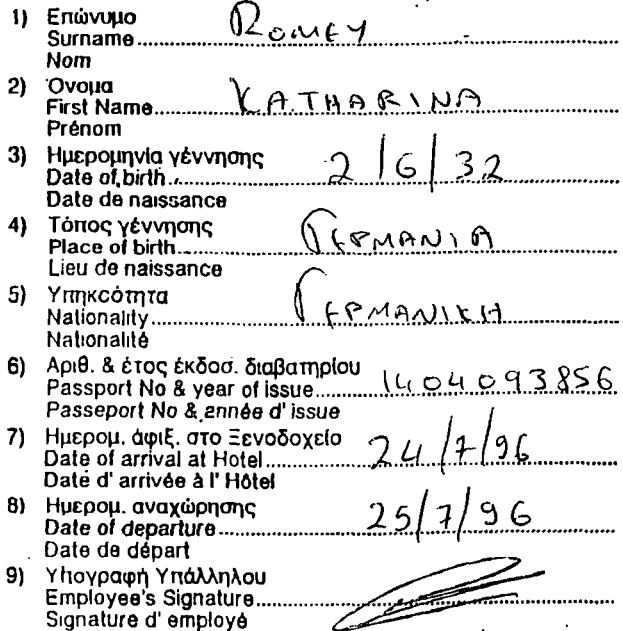 1) Επώνυμο
Surname ROMEY
Nom
2) Όνομα
First Name KATHARINA
Prénom
3) Ημερομηνία γέννησης
Date of birth 2/6/32
Date de naissance
4) Τόπος γέννησης
Place of birth ΓΕΡΜΑΝΙΑ
Lieu de naissance
5) Υπηκοότητα
Nationality ΓΕΡΜΑΝΙΚΗ
Nationalité
6) Αριθ. & έτος έκδοσ. διαβατηρίου
Passport No & year of issue 1404093856
Passeport No & année d' issue
7) Ημερομ. άφιξ. στο Ξενοδοχείο
Date of arrival at Hotel 24/7/96
Daté d' arrivée à l' Hôtel
8) Ημερομ. αναχώρησης
Date of departure 25/7/96
Date de départ
9) Υπογραφή Υπάλληλου
Employee's Signature
Signature d' employé